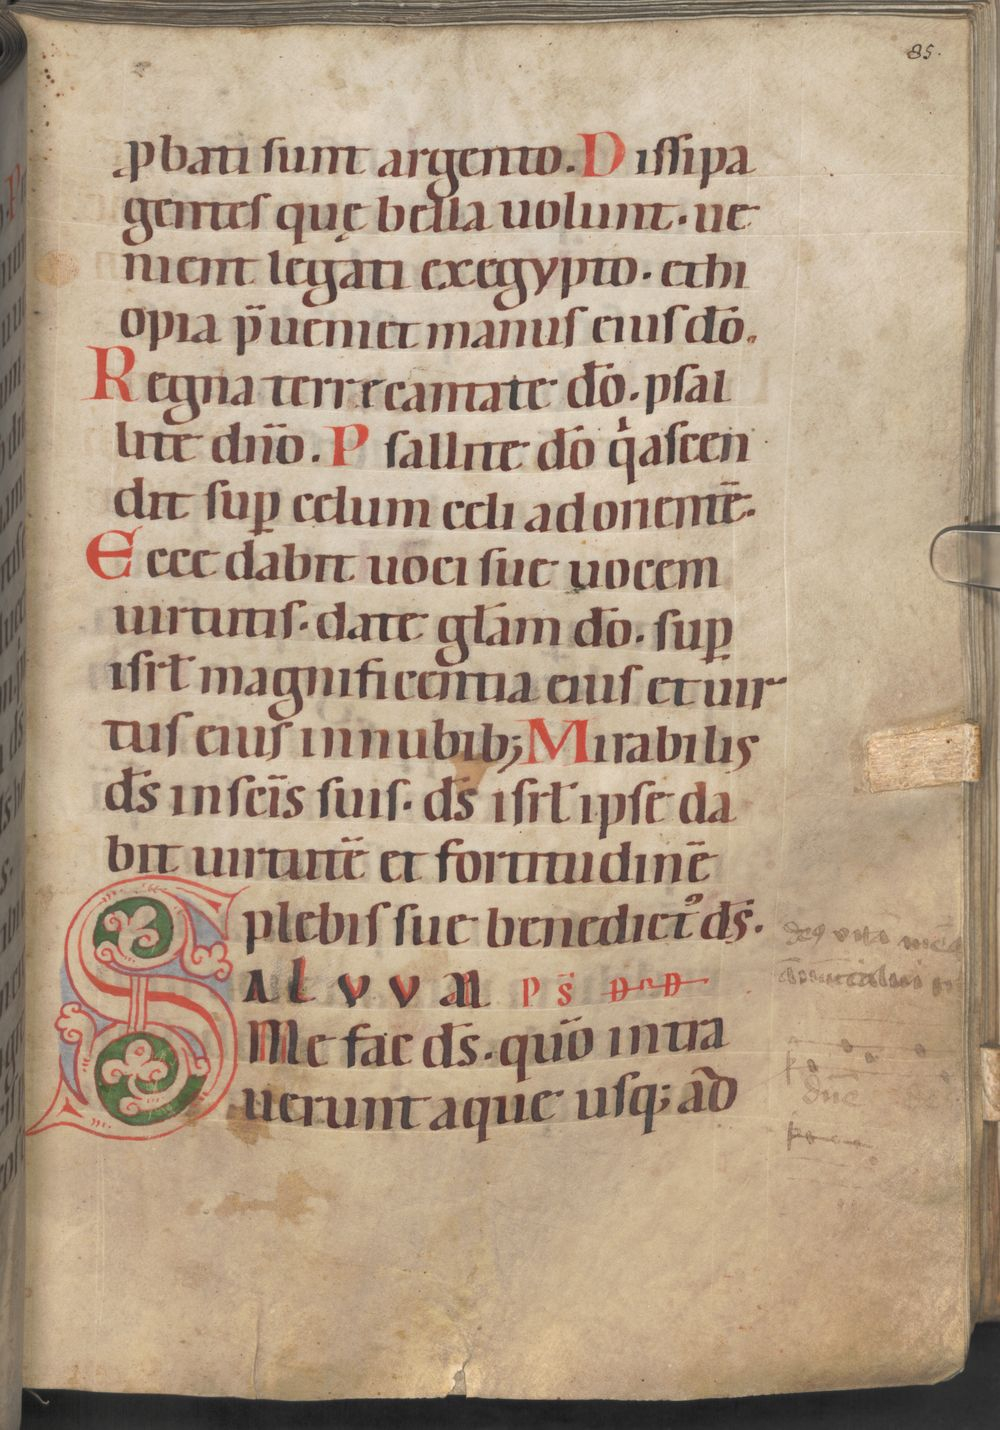 85.
ꝓbati sunt argento. Dissipa
gentes quę bella uolunt. ue
nient legati exegypto. ethi
opia p̄ueniet manus eius dō.
Regna terre cantate dō. psal
lite dn̄o. Psallite dō qͥascen
dit suꝑ celum celi adorientē.
Ecce dabit uoci sue uocem
uirtutis. date gl̄am dō. suꝑ
isrl̄ magnificentia eius et uir
tus eius innubib; Mirabilis
ds̄ insc̄is suis. ds̄ isrl̄ ipse da
bit uirtutē et fortitudinē
plebis sue benedict᷒ ds̄.
SALVVM PS̄ DD
Me fac ds̄. quō intra
uerunt aque usq; ad